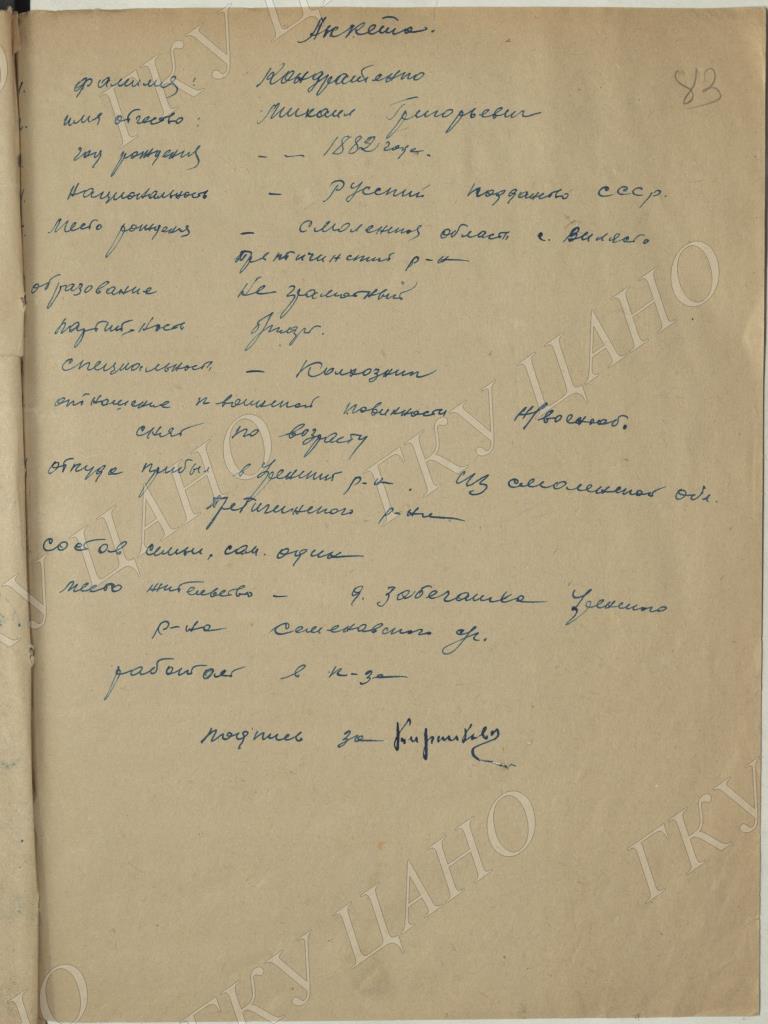 Анкета.
83
фамилия: Кондратенко
имя отчество: Михаил Григорьевич
год рождения - - 1882 года.
национальность - Русский подданство СССР.
Место рождения - Смоленская область с.
р-н
образование не грамотный
партийность б/парт.
специальность - Колхозник
отношение к воинской повинности н/военнооб.
снят по возрасту
откуда прибыл в Уренский р-н. из Смоленской обл.
р-на
состав семьи, сам. один
место жительство - д. Уренского
р-на Семеновского с/с.
работает в к-зе
подпись за
ГКУ ЦАНО